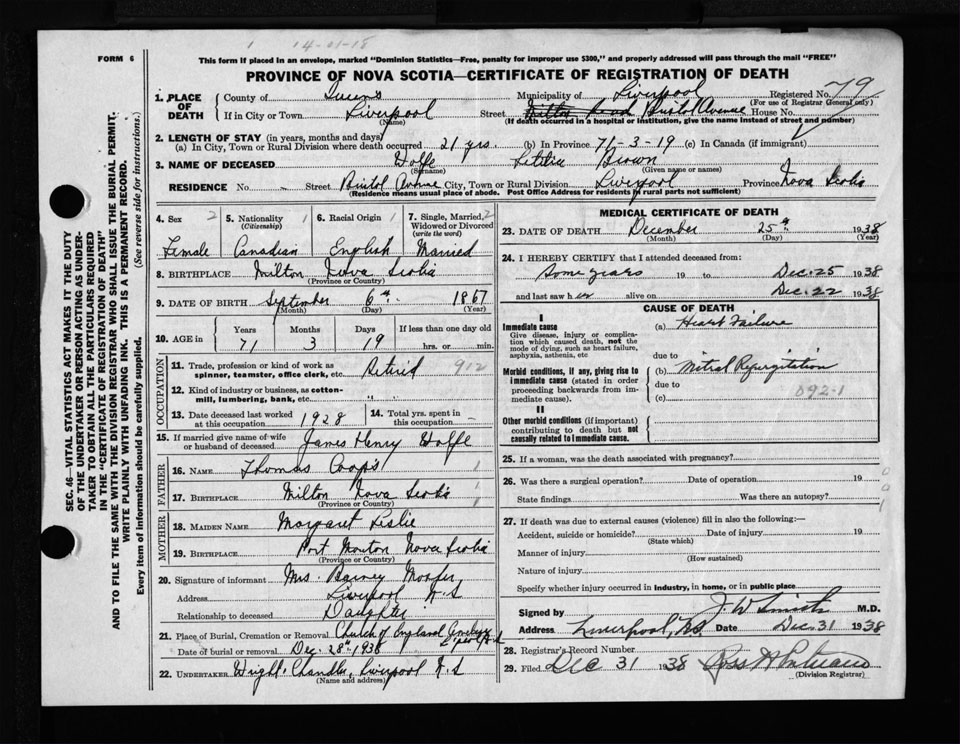 1 14-01-18
FORM 6
This form if placed in an envelope, marked "Dominion Statistics—Free, penalty for improper use $300," and properly addressed will pass through the mail "FREE"
PROVINCE OF NOVA SCOTIA—CERTIFICATE OF REGISTRATION OF DEATH
1. PLACE OF DEATH
County of Queens Municipality of Liverpool Registered No. 79
(For use of Registrar General only)
If in City or Town Liverpool Street Bristol Avenue House No.
(Name) (If death occurred in a hospital or institution, give the name instead of street and number)
2. LENGTH OF STAY (in years, months and days)
(a) In City, Town or Rural Division where death occurred 21 yrs. (b) In Province 71-3-19 (c) In Canada (if immigrant)
3. NAME OF DECEASED Wolfe Letitia
(Surname) (Given name or names)
RESIDENCE No. Street Bristol Avenue City, Town or Rural Division Liverpool Province Nova Scotia
(Residence means usual place of abode. Post Office Address for residents in rural parts not sufficient)
SEC. 46—VITAL STATISTICS ACT MAKES IT THE DUTY
OF THE UNDERTAKER OR PERSON ACTING AS UNDER-
TAKER TO OBTAIN ALL THE PARTICULARS REQUIRED
IN THE "CERTIFICATE OF REGISTRATION OF DEATH"
AND TO FILE THE SAME WITH THE DIVISION REGISTRAR WHO SHALL ISSUE THE BURIAL PERMIT.
WRITE PLAINLY WITH UNFADING INK. THIS IS A PERMANENT RECORD.
Every item of information should be carefully supplied. (See reverse side for instructions.)
4. Sex 2 5. Nationality 1 6. Racial Origin 1 7. Single, Married, 2
(Citizenship) Widowed or Divorced
(write the word)
Female Canadian English Married
8. BIRTHPLACE Milton Nova Scotia
(Province or Country)
9. DATE OF BIRTH September 6th 1867
(Month) (Day) (Year)
10. AGE in Years Months Days If less than one day old
71 3 19 hrs. or min.
OCCUPATION
11. Trade, profession or kind of work as
spinner, teamster, office clerk, etc. Retired 912
12. Kind of industry or business, as cotton-
mill, lumbering, bank, etc. " "
13. Date deceased last worked
at this occupation 1928
14. Total yrs. spent in
this occupation –
15. If married give name of wife
or husband of deceased James Henry Wolfe
FATHER
16. NAME Thomas Coops 1
17. BIRTHPLACE Milton Nova Scotia 1
(Province or Country) 1
MOTHER
18. MAIDEN NAME Margaret Leslie
19. BIRTHPLACE Port Mouton Nova Scotia
(Province or Country)
20. Signature of informant Mrs.
Address Liverpool N.S
Relationship to deceased Daughter
21. Place of Burial, Cremation or Removal Church of England Cemetery
Date of burial or removal Dec. 28th 1938
22. UNDERTAKER Wright Chandler, Liverpool N.S
(Name and address)
MEDICAL CERTIFICATE OF DEATH
23. DATE OF DEATH December 25th 1938
(Month) (Day) (Year)
24. I HEREBY CERTIFY that I attended deceased from:
Some years 19 to Dec. 25 1938
and last saw h er alive on Dec. 22 1938
CAUSE OF DEATH
I
Immediate cause (a) Heart Failure
Give disease, injury or complica-
tion which caused death, not the
mode of dying, such as heart failure,
asphyxia, asthenia, etc
due to
Morbid conditions, if any, giving rise to
immediate cause (stated in order
proceeding backwards from im-
mediate cause).
(b) Mitral Regurgitation
due to 092-1
(c)
II
Other morbid conditions (if important)
contributing to death but not
causally related to immediate cause.
25. If a woman, was the death associated with pregnancy?
26. Was there a surgical operation? Date of operation 19 0
0
State findings Was there an autopsy? 1
27. If death was due to external causes (violence) fill in also the following:—
Accident, suicide or homicide? Date of injury 19
(State which)
Manner of injury
(How sustained)
Nature of injury
Specify whether injury occurred in industry, in home, or in public place
Signed by J. W Smith M.D.
Address Liverpool, NS Date Dec. 31 1938
28. Registrar's Record Number
29. Filed Dec 31 1938
(Division Registrar)